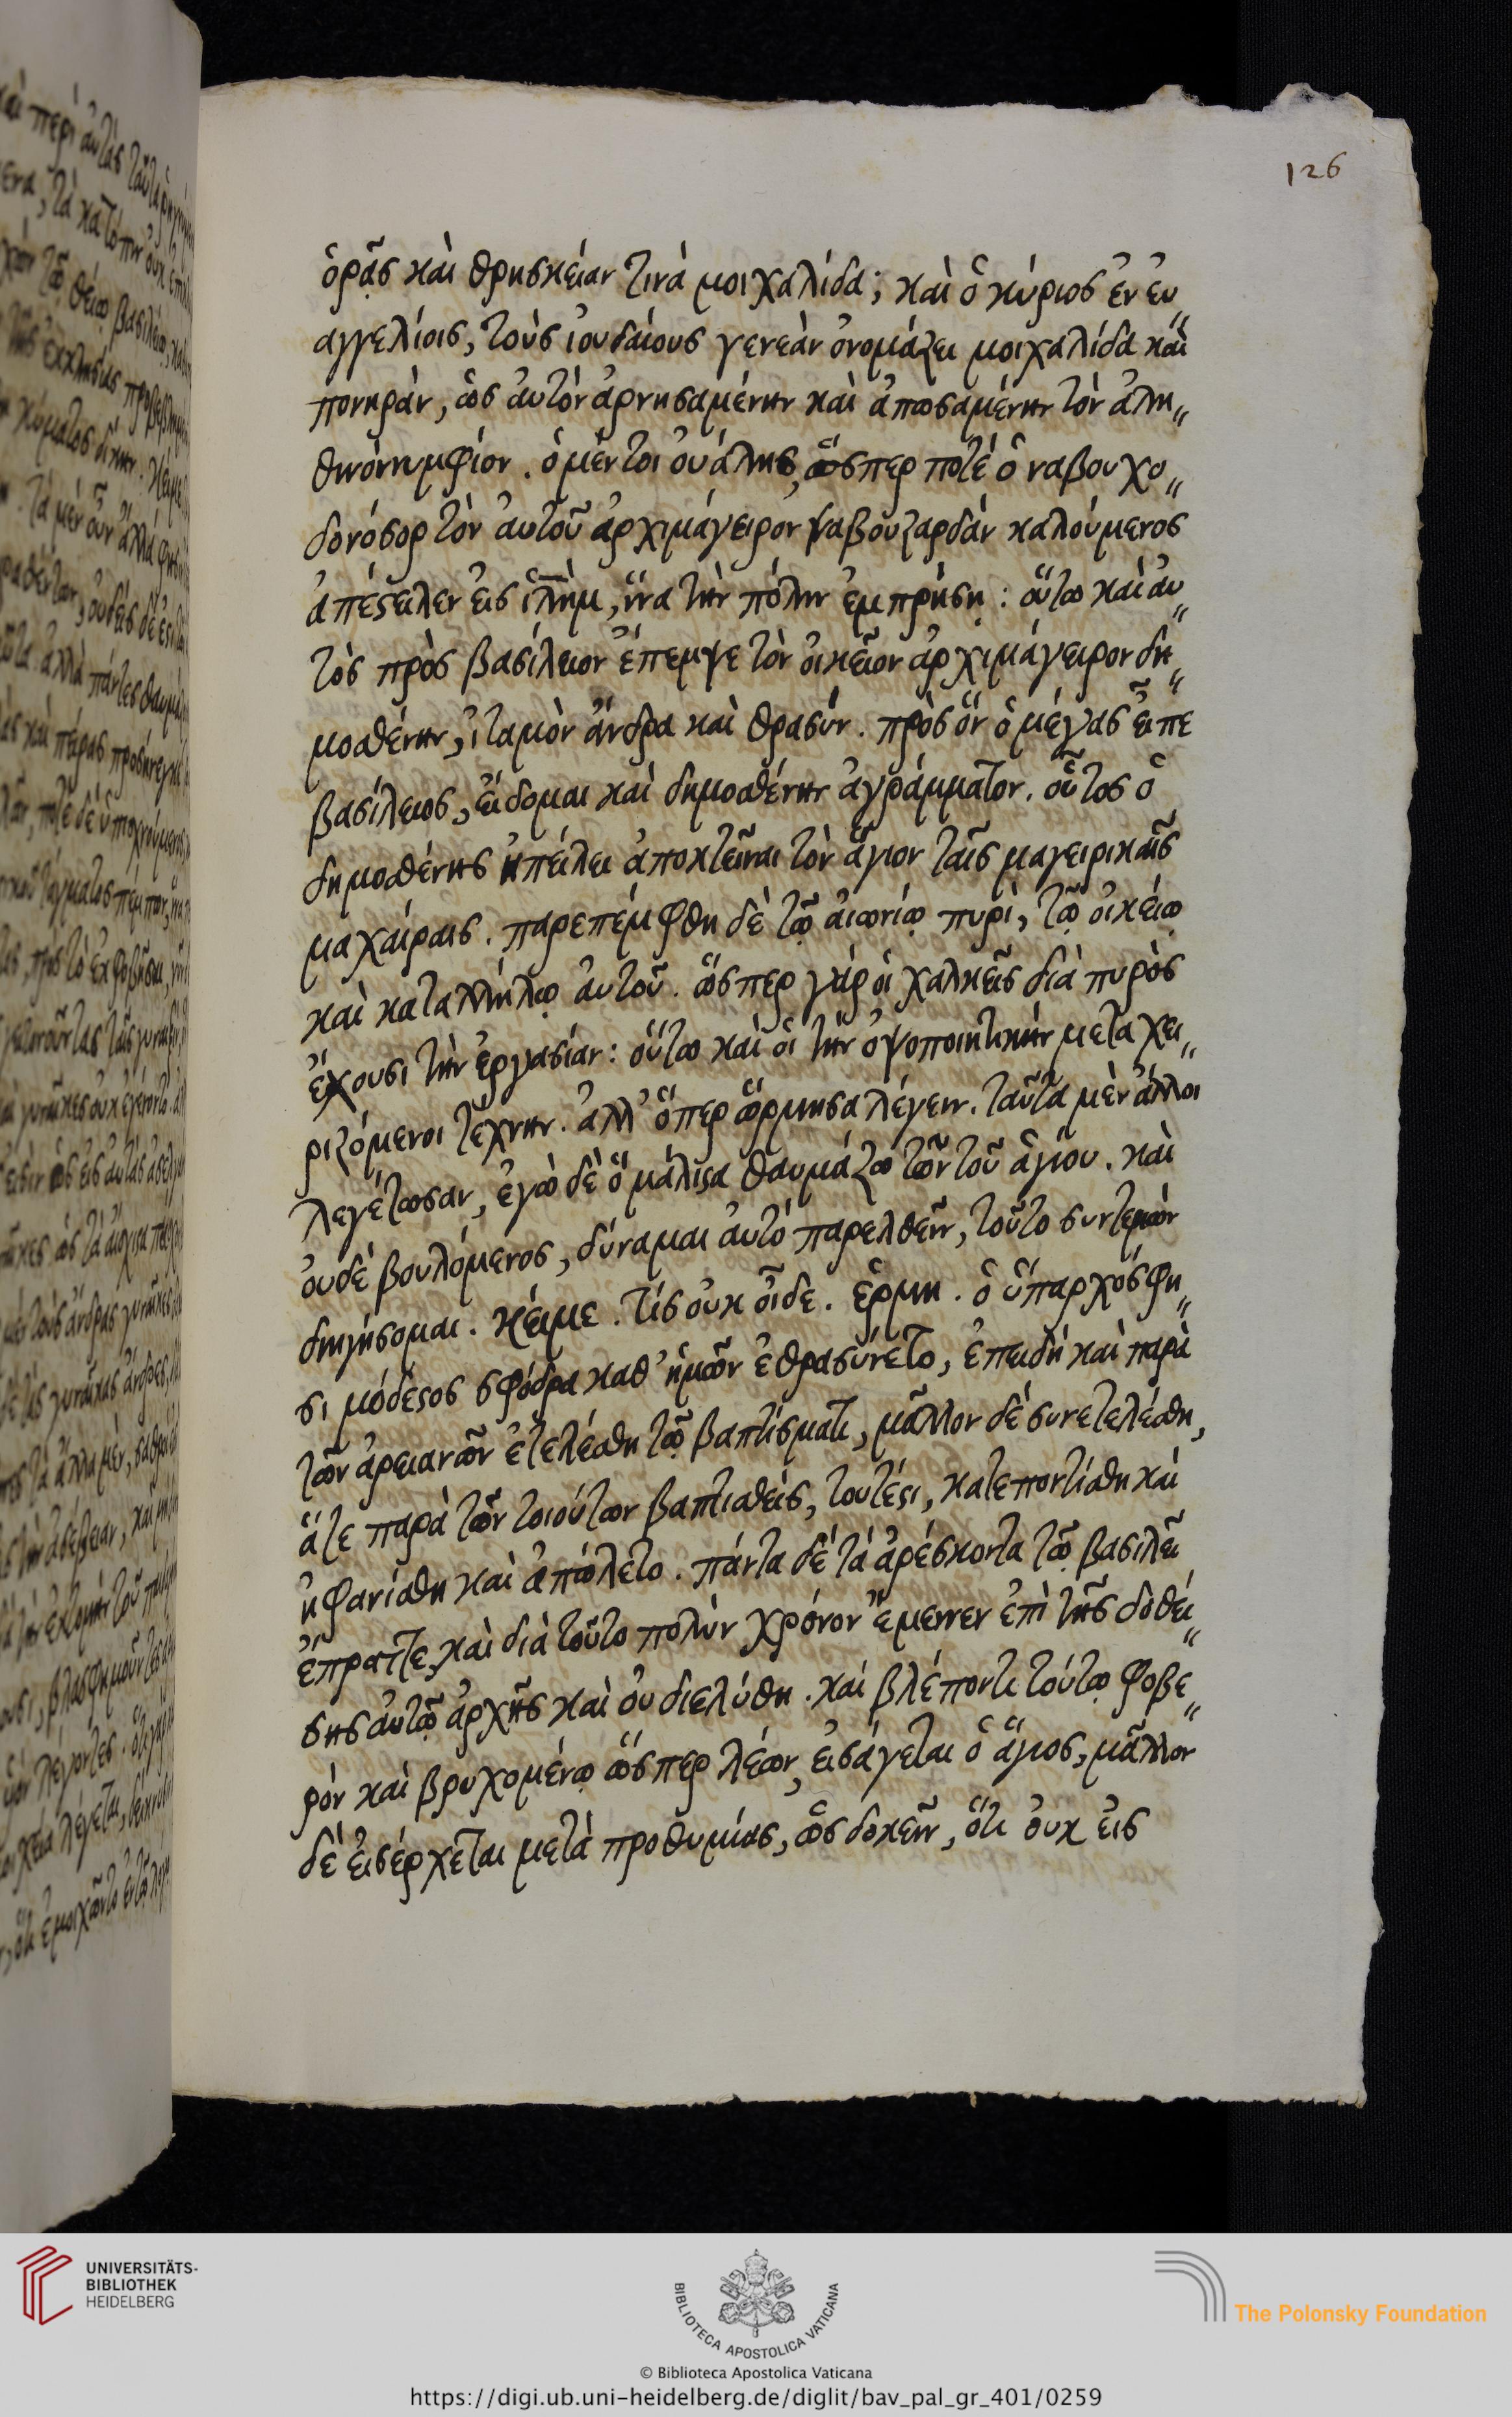 126
ὁρᾷς καὶ θρησκείαν τινὰ μοιχαλίδα; καὶ ὁ κύριος ἐν εὐ„
αγγελίοις, τοὺς ἰουδαίους γενεὰν ὀνομάζει μοιχαλίδα καὶ
πονηρὰν, ὡς ἀυτὸν ἀρνησαμένην καὶ ἀπωσαμένην τὸν ἀλη„
θινὸν νυμφίον. ὁ μέντοι ὀυάλης, ὥσπερ ποτὲ ὁ ναβουχο„
δονόσορ τὸν ἀυτοῦ ἀρχιμάγειρον ναβουζαρδὰν καλούμενος
ἀπέστειλεν εἰς ἱλημ, ἵνα τὴν πόλιν ἐμπρήσῃ: ὅυτω καὶ ἀυ„
τὸς πρὸς βασίλειον ἔπεμψε τὸν ὀικεῖον ἀρχιμάγειρον δη„
μοσθένην, ἰταμὸν ἄνδρα καὶ θρασύν. πρὸς ὃν ὁ μέγας εἶπε
βασίλειος, ἔιδομαι καὶ δημοσθένην ἀγράμματον. οὗτος ὁ
δημοσθένης ἠπείλει ἀποκτεῖναι τὸν ἅγιον ταῖς μαγειρικαῖς
μαχαίραις. παρεπέμφθη δὲ τῷ ἀιωνίῳ πυρὶ, τῷ ὀικείῳ
καὶ καταλλήλῳ ἀυτοῦ. ὥσπερ γὰρ ὁι χαλκεῖς διὰ πυρὸς
ἔχουσι τὴν ἐργασίαν: ὅυτω καὶ ὁι τὴν ὀψοποιητικὴν μεταχει„
ριζόμενοι τέχνην. ἀλλ' ὅπερ ὥρμησα λέγειν. ταῦτα μὲν ἄλλοι
λεγέτωσαν, ἐγὼ δὲ ὃ μάλιστα θαυμάζω τῶν τοῦ ἁγίου. καὶ
ὀυδὲ βουλόμενος, δύναμαι ἀυτὸ παρελθεῖν, τοῦτο συντεμὼν
διηγήσομαι. κείμε. τίς ὀυκ οἶδε. ἑρμη. ὁ ὕπαρχός φη„
σι μόδεστος σφόδρα καθ' ἡμῶν ἐθρασύνετο, ἐπειδὴ καὶ παρὰ
τῶν ἀρειανῶν ἐτελέσθη τῷ βαπτίσματι, μᾶλλον δὲ συνετελέσθη,
ἅτε παρὰ τῶν τοιούτων βαπτισθεὶς, τουτέστι, κατεποντίσθη καὶ
ἠφανίσθη καὶ ἀπώλετο. πάντα δὲ τὰ ἀρέσκοντα τῷ βασιλεῖ
ἔπραττε, καὶ διὰ τοῦτο πολὺν χρόνον ἔμεινεν ἐπὶ τῆς δοθεί„
σης ἀυτῷ ἀρχῆς καὶ ὀυ διελύθη. καὶ βλέποντι τούτῳ φοβε„
ρὸν καὶ βρυχομένῳ ὥσπερ λέων, ἐισάγεται ὁ ἅγιος, μᾶλλον
δὲ ἐισέρχεται μετὰ προθυμίας, ὡς δοκεῖν, ὅτι ὀυκ ἐις
UNIVERSITÄTS-
BIBLIOTHEK
HEIDELBERG
BIBLIOTECA APOSTOLICA VATICANA
The Polonsky Foundation
© Biblioteca Apostolica Vaticana
https://digi.ub.uni-heidelberg.de/diglit/bav_pal_gr_401/0259